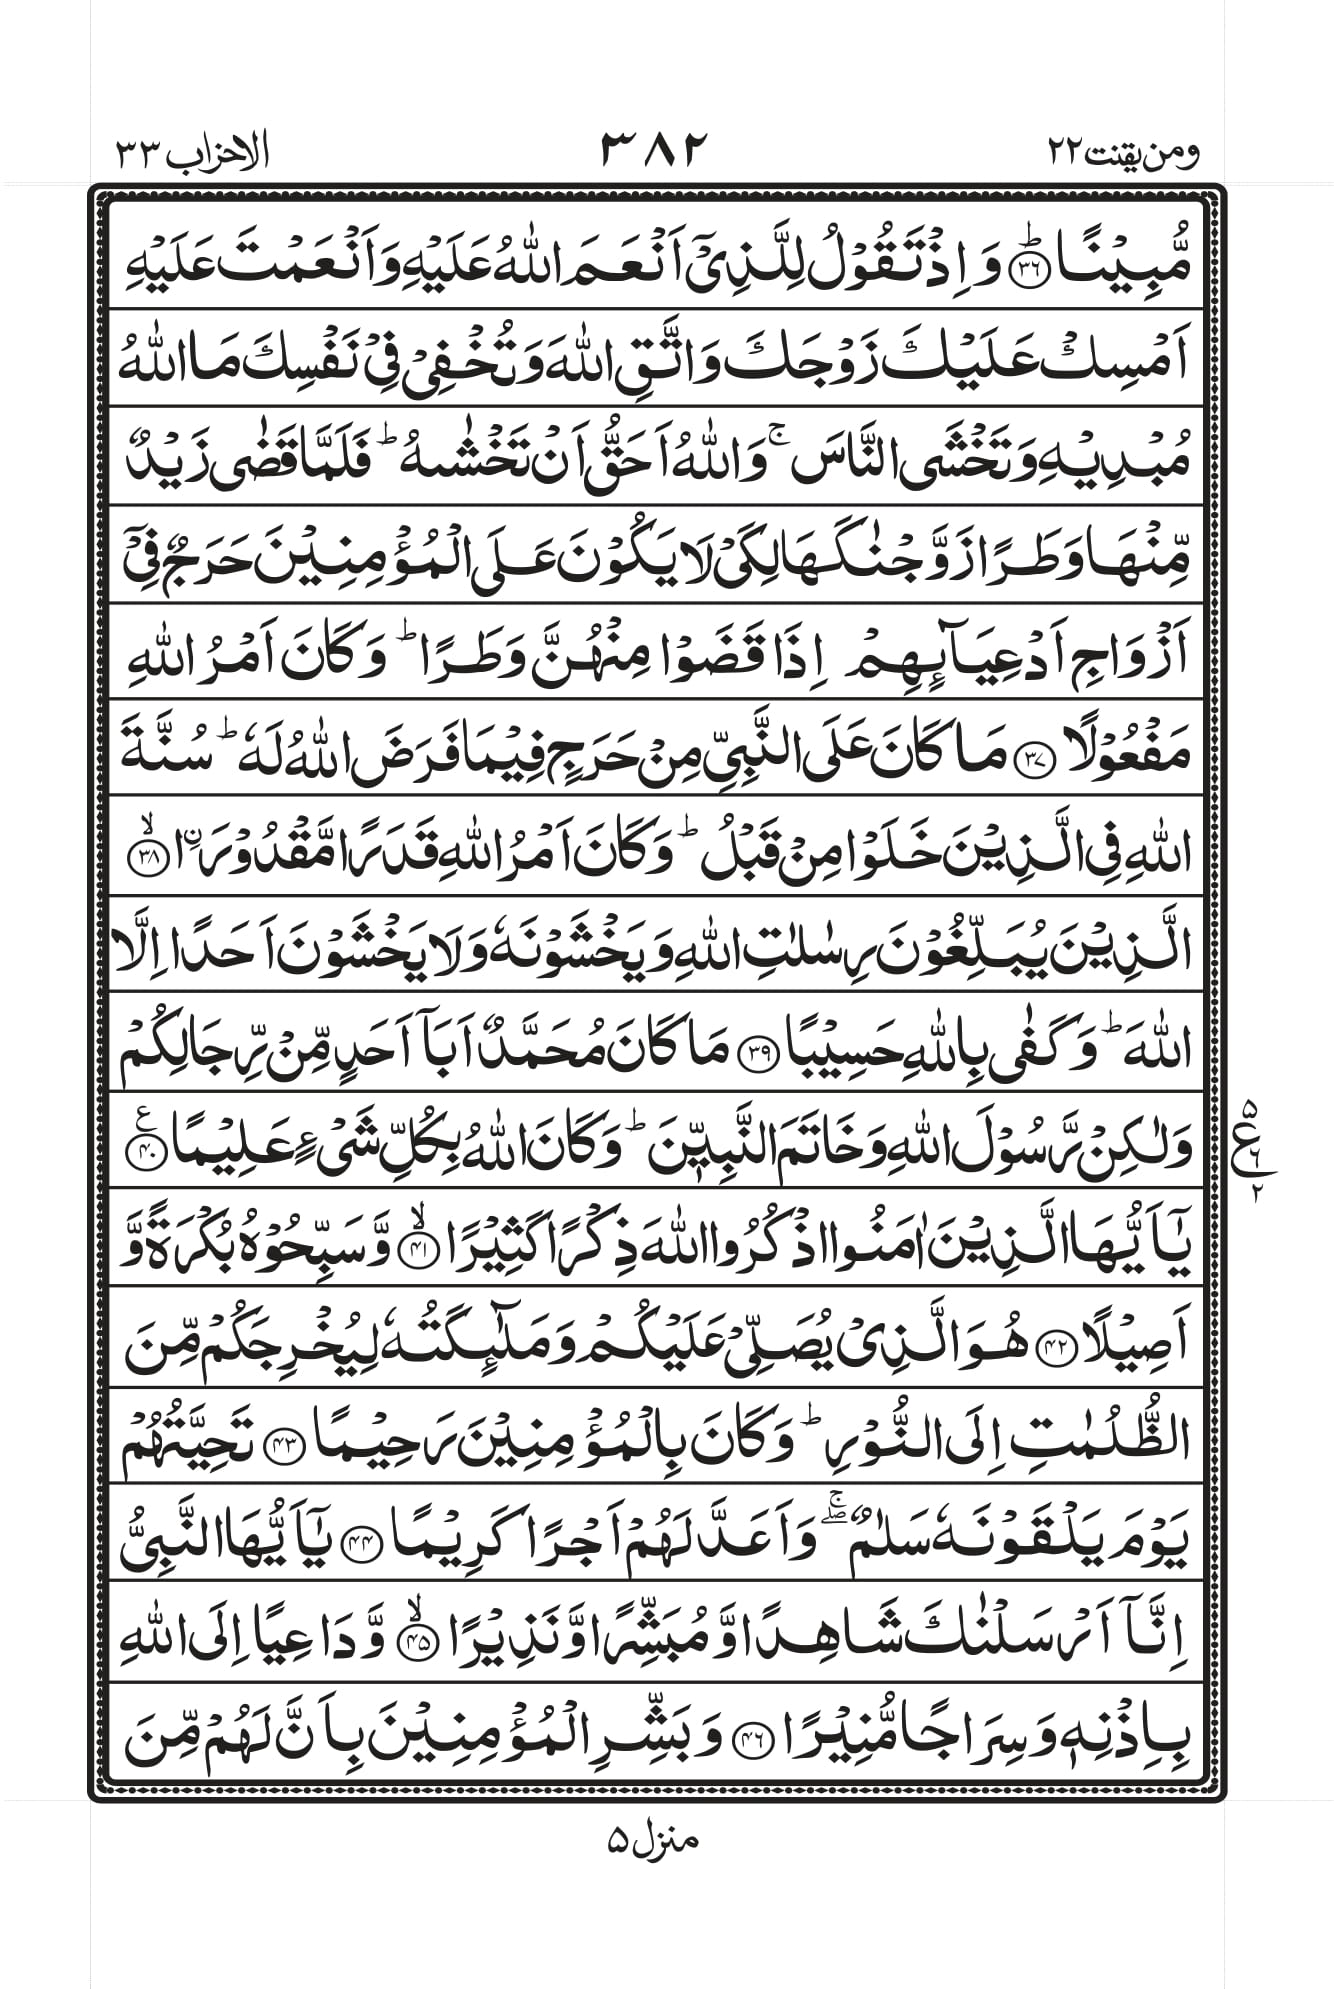 ومن یقنت ۲۲
۳۸۲
الاحزاب ۳۳
مُّبِيْنًا ؕ‏ ﴿۳۶﴾ وَ اِذْ تَقُوْلُ لِلَّذِىْۤ اَنْعَمَ اللّٰهُ عَلَيْهِ وَاَنْعَمْتَ عَلَيْهِ
اَمْسِكْ عَلَيْكَ زَوْجَكَ وَاتَّقِ اللّٰهَ وَتُخْفِىْ فِىْ نَفْسِكَ مَا اللّٰهُ
مُبْدِيْهِ وَتَخْشَى النَّاسَ ۚ وَاللّٰهُ اَحَقُّ اَنْ تَخْشٰٮهُ ؕ فَلَمَّا قَضٰى زَيْدٌ
مِّنْهَا وَطَرًا زَوَّجْنٰكَهَا لِكَىْ لَا يَكُوْنَ عَلَى الْمُؤْمِنِيْنَ حَرَجٌ فِىْۤ
اَزْوَاجِ اَدْعِيَآئِهِمْ اِذَا قَضَوْا مِنْهُنَّ وَطَرًا ؕ وَكَانَ اَمْرُ اللّٰهِ
مَفْعُوْلًا ﴿۳۷﴾ مَا كَانَ عَلَى النَّبِىِّ مِنْ حَرَجٍ فِيْمَا فَرَضَ اللّٰهُ لَهٗ ؕ سُنَّةَ
اللّٰهِ فِى الَّذِيْنَ خَلَوْا مِنْ قَبْلُ ؕ وَكَانَ اَمْرُ اللّٰهِ قَدَرًا مَّقْدُوْرَاۨ ۙ‏ ﴿۳۸﴾
الَّذِيْنَ يُبَلِّغُوْنَ رِسٰلٰتِ اللّٰهِ وَيَخْشَوْنَهٗ وَلَا يَخْشَوْنَ اَحَدًا اِلَّا
اللّٰهَ ؕ وَكَفٰى بِاللّٰهِ حَسِيْبًا ﴿۳۹﴾ مَا كَانَ مُحَمَّدٌ اَبَآ اَحَدٍ مِّنْ رِّجَالِكُمْ
وَلٰكِنْ رَّسُوْلَ اللّٰهِ وَخَاتَمَ النَّبِيّٖنَ ؕ وَكَانَ اللّٰهُ بِكُلِّ شَىْءٍ عَلِيْمًا ﴿۴۰﴾ ع
۵
ع ۶
۲
يٰۤاَيُّهَا الَّذِيْنَ اٰمَنُوا اذْكُرُوا اللّٰهَ ذِكْرًا كَثِيْرًا ۙ‏ ﴿۴۱﴾ وَّ سَبِّحُوْهُ بُكْرَةً وَّ
اَصِيْلًا ﴿۴۲﴾ هُوَ الَّذِىْ يُصَلِّىْ عَلَيْكُمْ وَمَلٰٓئِكَتُهٗ لِيُخْرِجَكُمْ مِّنَ
الظُّلُمٰتِ اِلَى النُّوْرِ ؕ وَكَانَ بِالْمُؤْمِنِيْنَ رَحِيْمًا ﴿۴۳﴾ تَحِيَّتُهُمْ
يَوْمَ يَلْقَوْنَهٗ سَلٰمٌ ۖۚ وَاَعَدَّ لَهُمْ اَجْرًا كَرِيْمًا ﴿۴۴﴾ يٰۤاَيُّهَا النَّبِىُّ
اِنَّاۤ اَرْسَلْنٰكَ شَاهِدًا وَّمُبَشِّرًا وَّنَذِيْرًا ۙ‏ ﴿۴۵﴾ وَّدَاعِيًا اِلَى اللّٰهِ
بِاِذْنِهٖ وَسِرَاجًا مُّنِيْرًا ﴿۴۶﴾ وَبَشِّرِ الْمُؤْمِنِيْنَ بِاَنَّ لَهُمْ مِّنَ
منزل ۵